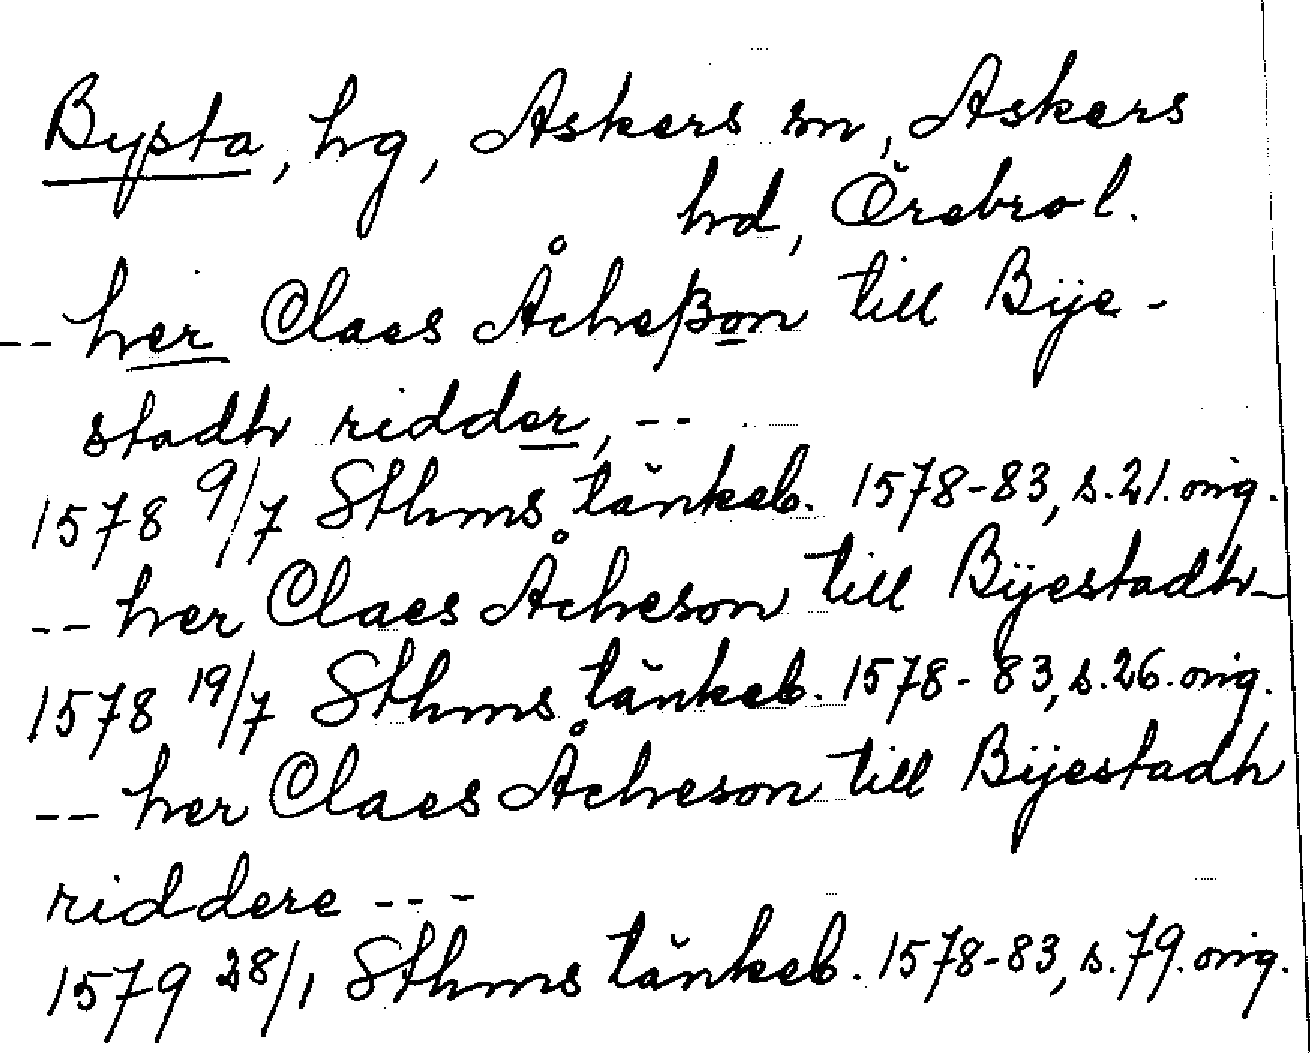 Bysta, hg, Askers sn, Askers
hd, Örebro l.
-- her Claes Åcheßon till Bije-
stadh ridder, --
1578 9/7 Sthms tänkeb. 1578-83, s. 21. orig.
-- her Claes Åcheson till Bijestadh --
1578 19/7 Sthms tänkeb. 1578-83, s. 26. orig.
-- her Claes Åcheson till Bijestadh
riddere ---
1579 28/1 Sthms tänkeb. 1578-83, s. 79. orig.